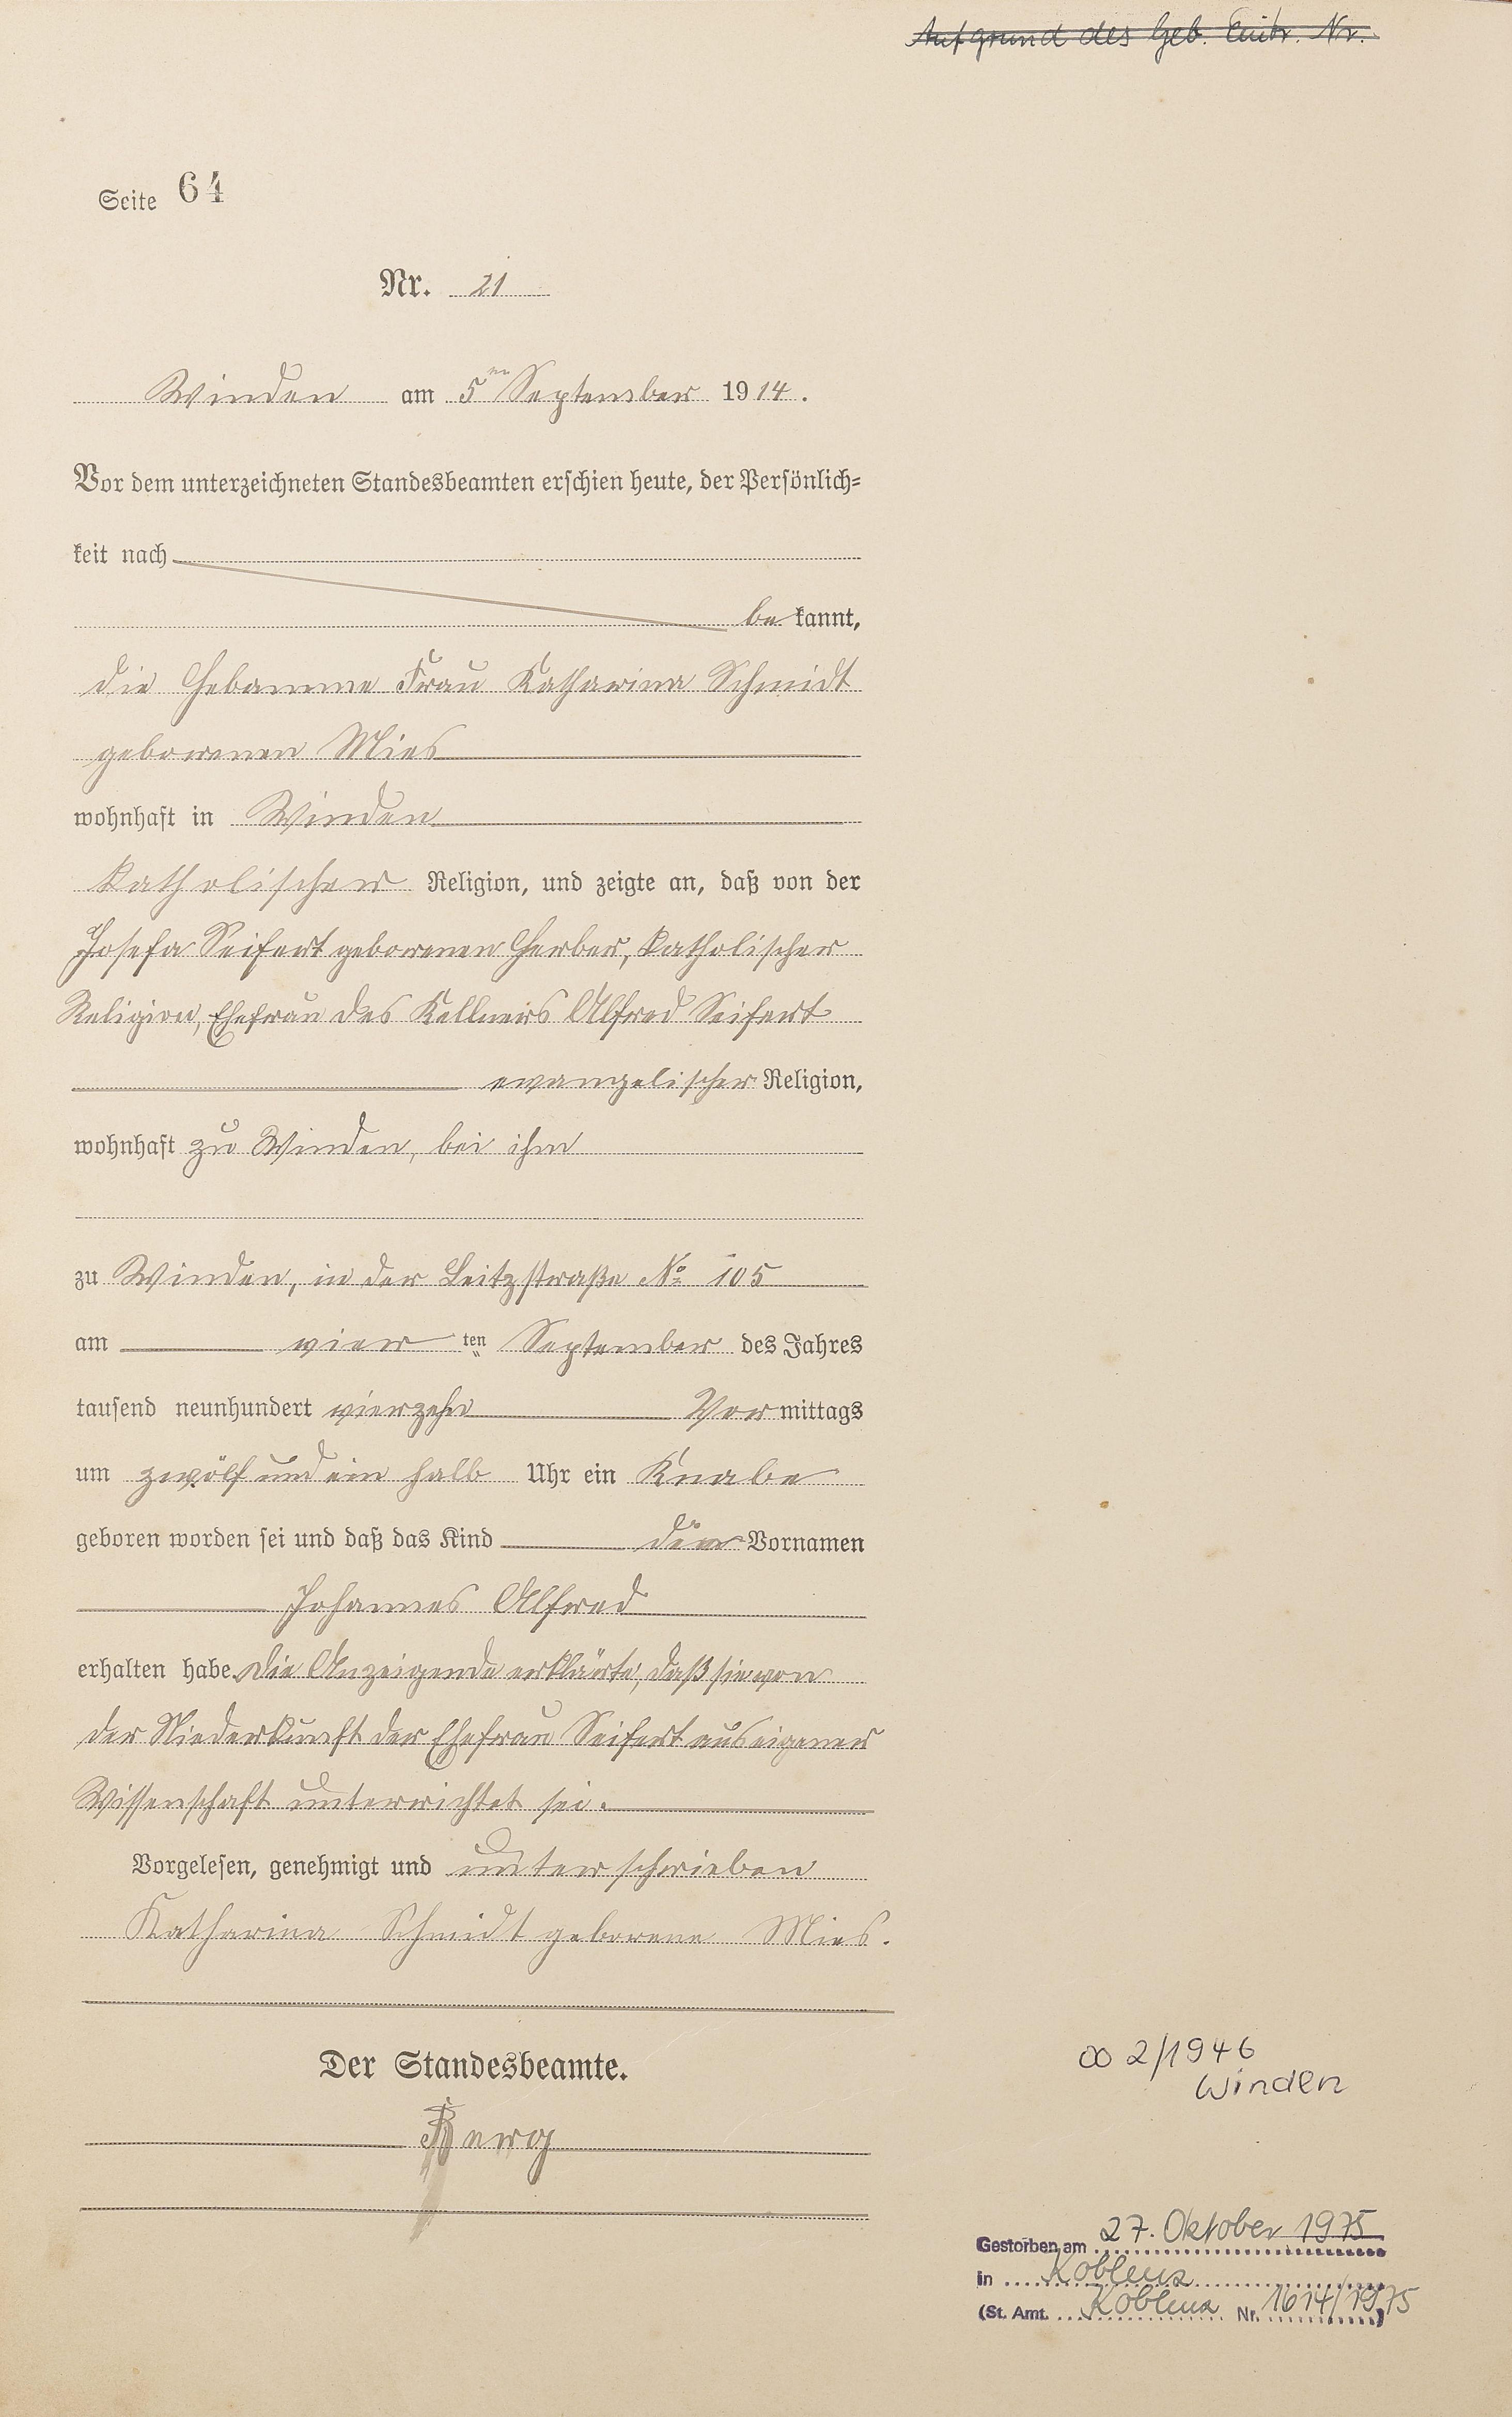 Aufgrund des Geb. Eintr. Nr.
Seite 64
Nr. 21
Winden am 5ten September 1914.
Vor dem unterzeichneten Standesbeamten erschien heute, der Persönlich-
keit nach
be kannt,
die Hebamme Frau Katharina Schmidt
geborenen Mies
wohnhaft in Winden
katholischer Religion, und zeigte an, daß von der
Josefa Seifert geborenen Gerber, katholischer
Religion, Ehefrau des Kellners Alfred Seifert
evangelischer Religion,
wohnhaft zu Winden, bei ihm
zu Winden, in der Leitzstraße No 105
am vier ten September des Jahres
tausend neunhundert vierzehn Vor mittags
um zwölf und ein halb Uhr ein Knabe
geboren worden sei und daß das Kind die Vornamen
Johannes Alfred
erhalten habe. Die Anzeigende erklärte, daß sie von
der Niederkunft der Ehefrau Seifert aus eigener
Wissenschaft unterrichtet sei.
Vorgelesen, genehmigt und unterschrieben
Katharina Schmidt geborene Mies.
Der Standesbeamte.
Berg
∞ 2/1946
Winden
Gestorben am 27. Oktober 1975
in Koblenz
(St. Amt. Koblenz Nr. 1614/1975)